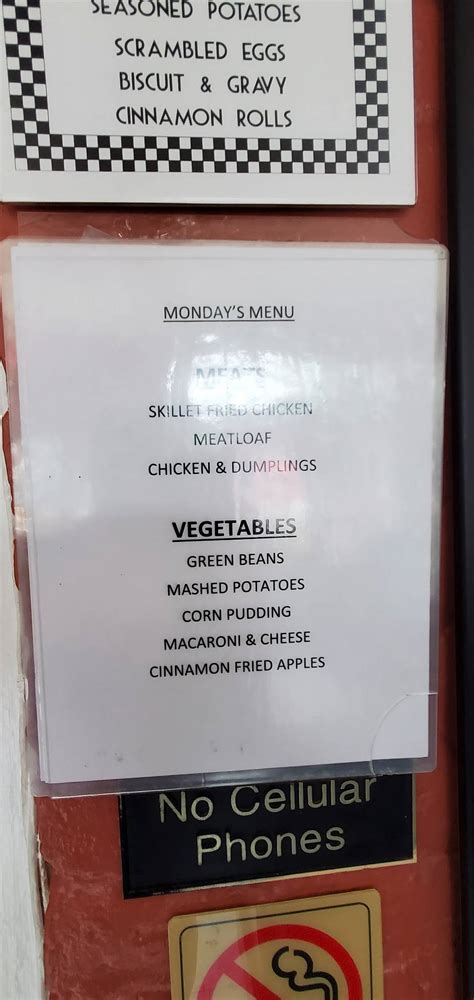 SEASONED POTATOES
SCRAMBLED EGGS
BISCUIT & GRAVY
CINNAMON ROLLS
MONDAY'S MENU
MEATS
SKILLET FRIED CHICKEN
MEATLOAF
CHICKEN & DUMPLINGS
VEGETABLES
GREEN BEANS
MASHED POTATOES
CORN PUDDING
MACARONI & CHEESE
CINNAMON FRIED APPLES
No Cellular
Phones